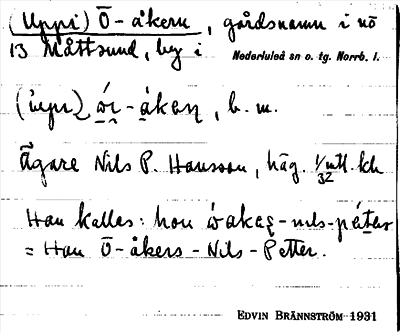 (Uppi) Ö-åkern, gårdsnamn i no
13 Måttsund, by i Nederluleå sn o. tg. Norrb. l.
b. m.
Ägare Nils P. Hansson, häg. 1/32 mtl. kr
Han kallas: hon
= Han Ö-åkers-Nils-Petter.
EDVIN BRÄNNSTRÖM 1931